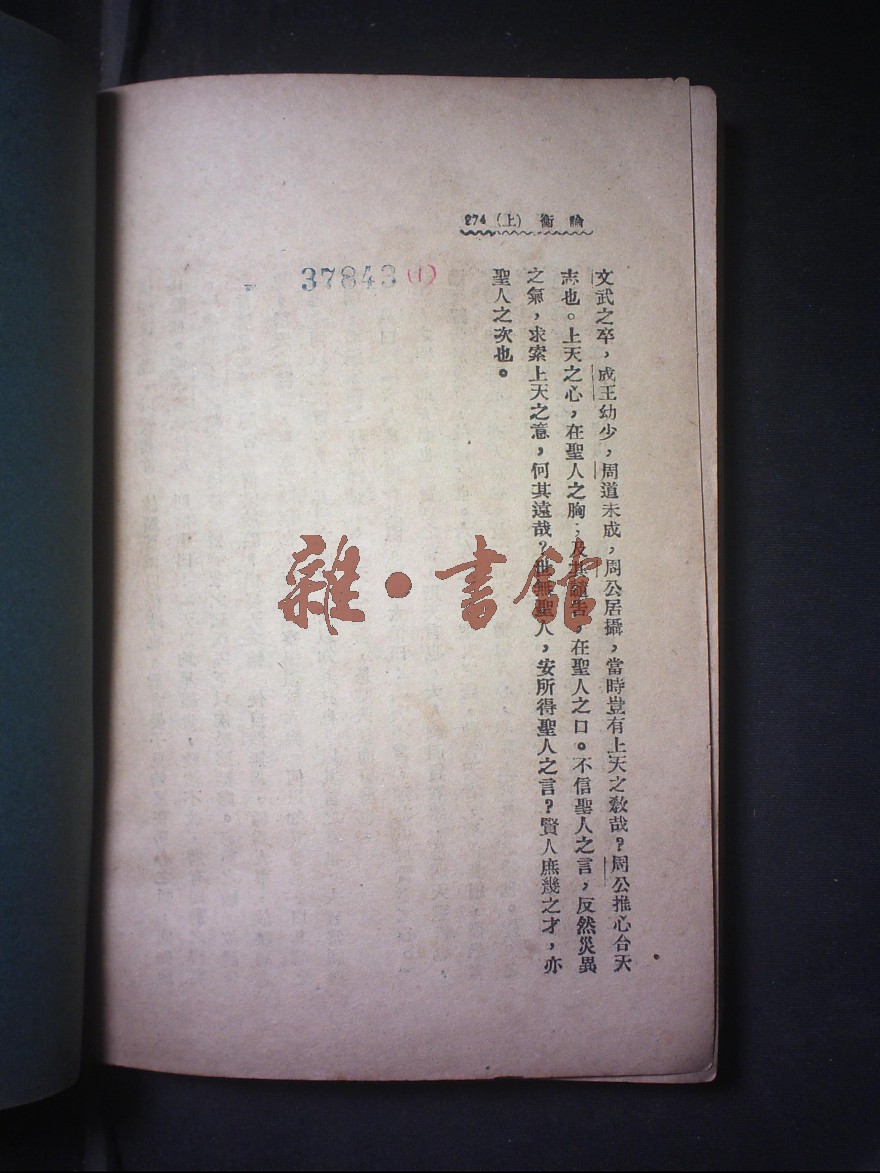 論衡（上）274
37843 (1)
文武之卒，成王幼少，周道未成，周公居攝，當時豈有上天之敎哉？周公推心合天
志也。上天之心，在聖人之胸；及其譴告，在聖人之口。不信聖人之言，反然災異
之氣，求索上天之意，何其遠哉？世無聖人，安所得聖人之言？賢人庶幾之才，亦
聖人之次也。
雜·書館